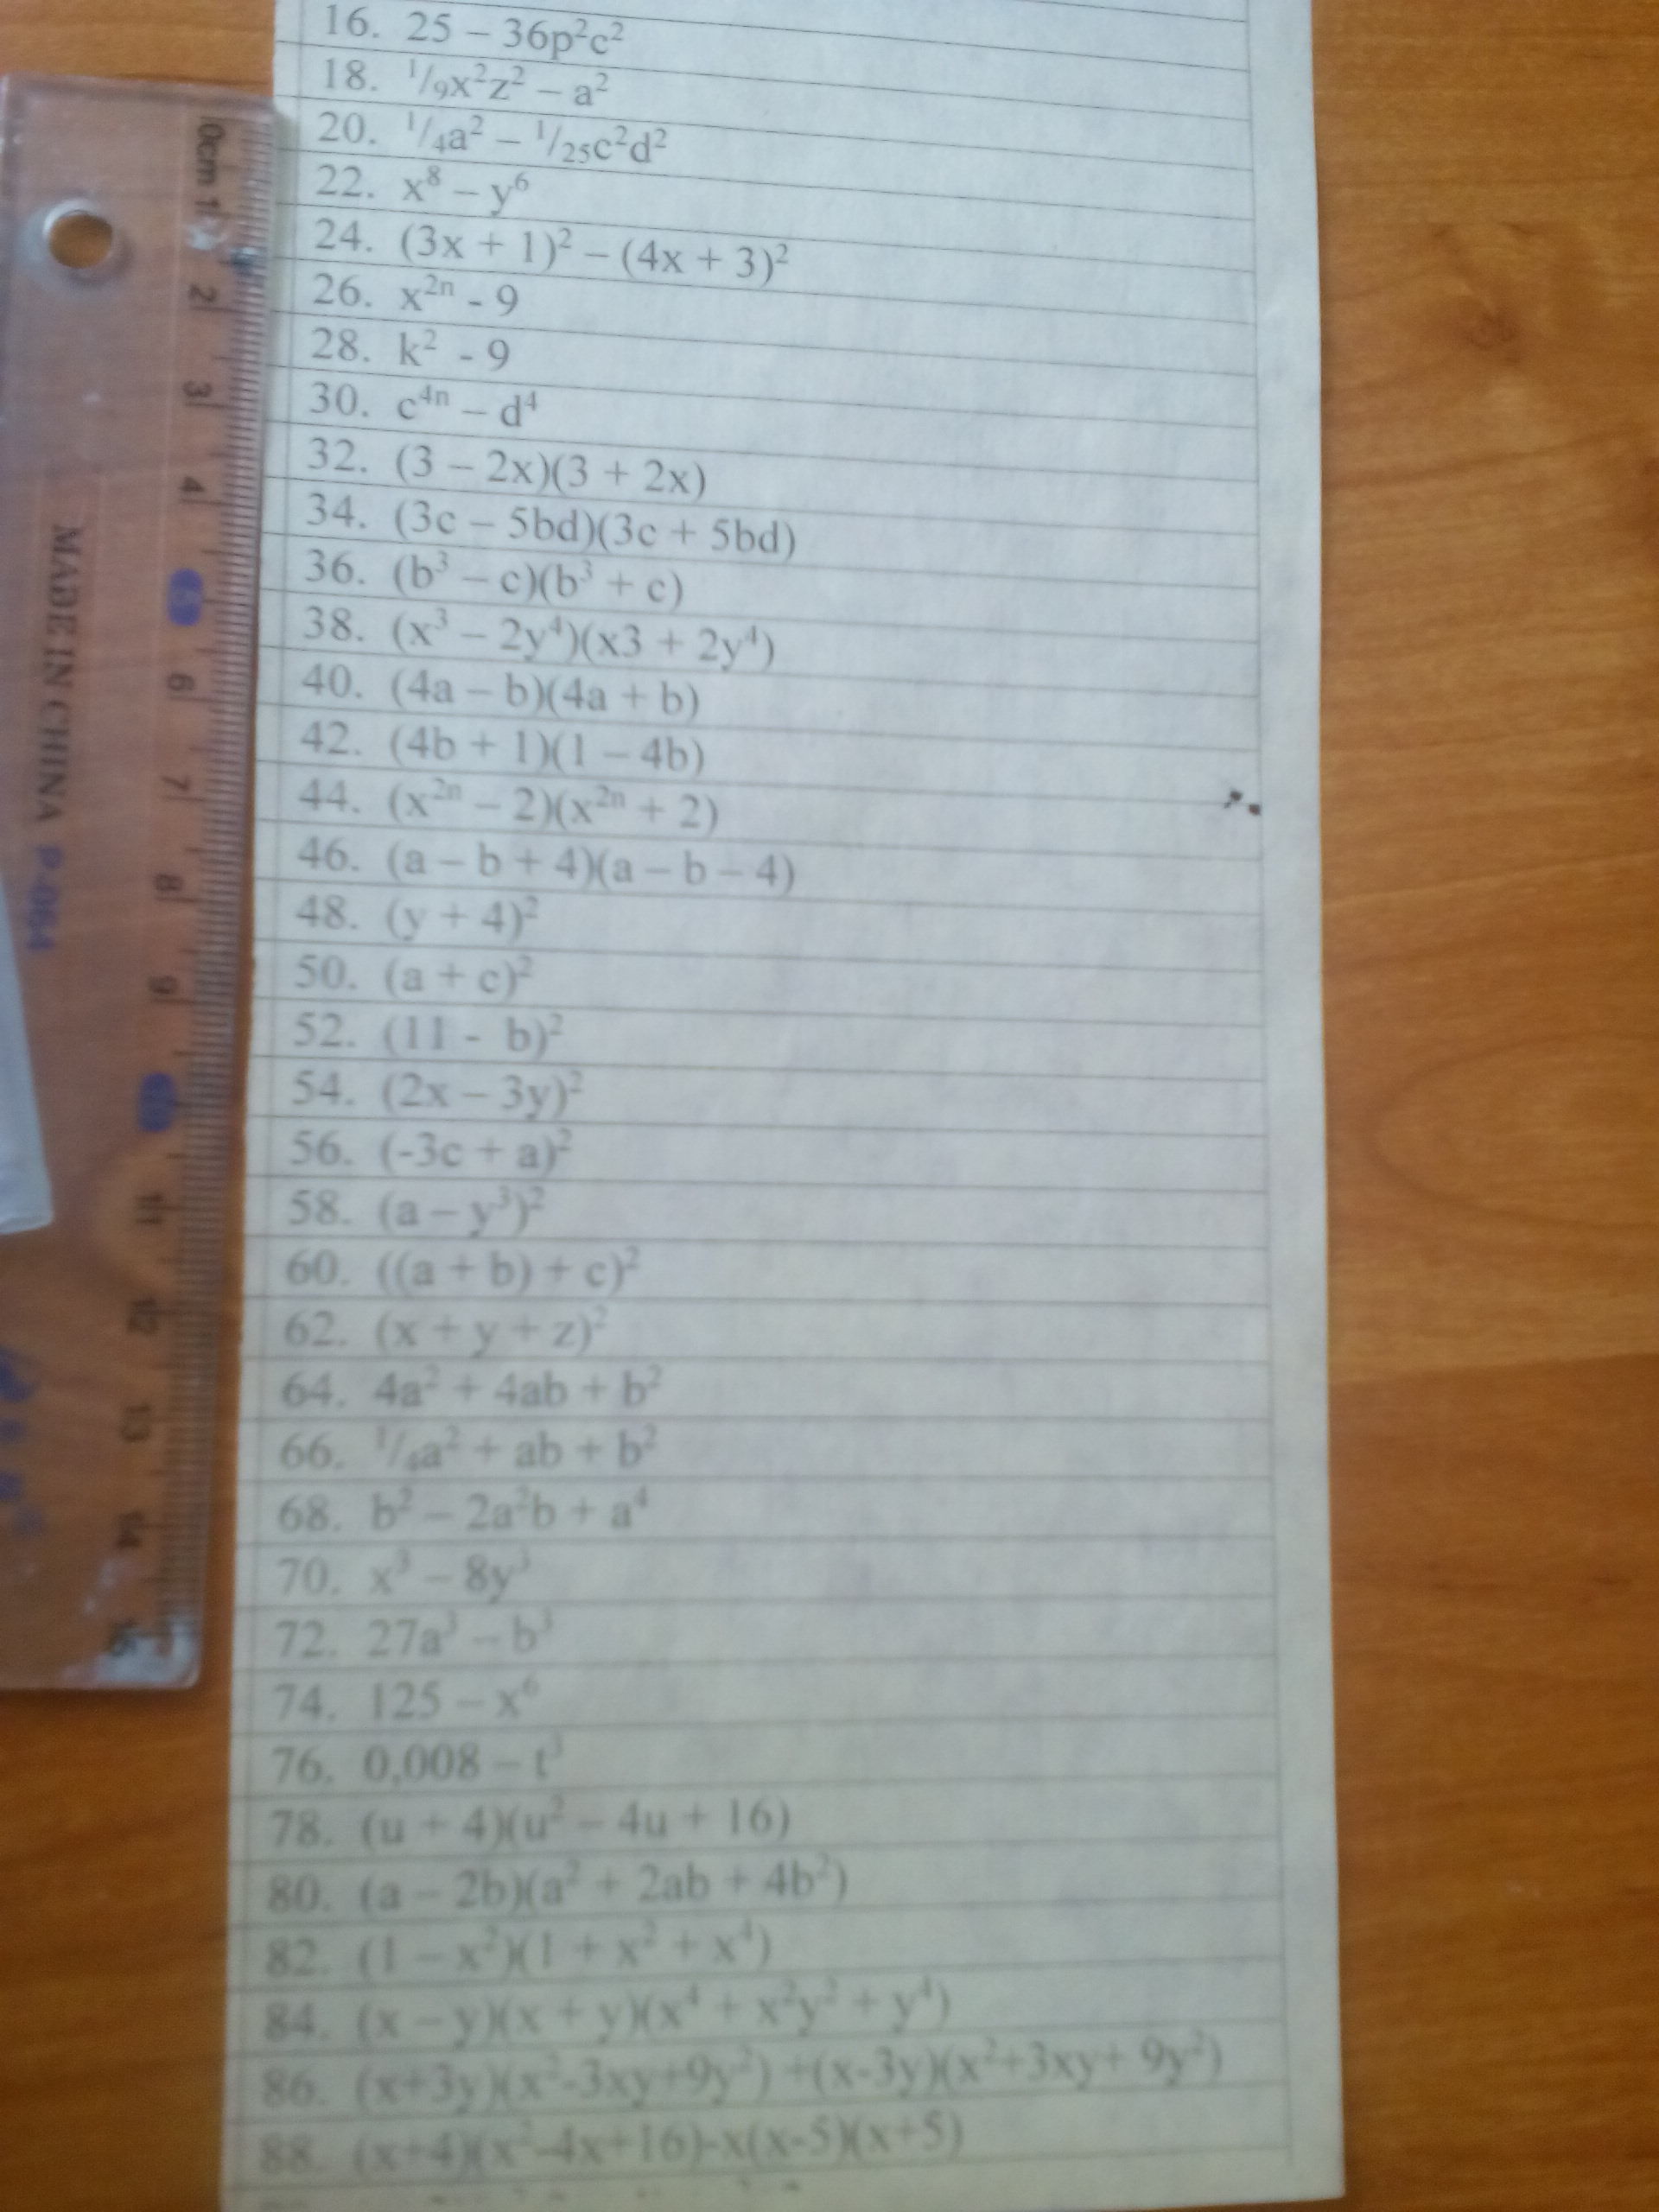 16. 25 – 36p²c²
18. ¹/₉x²z² – a²
20. ¹/₄a² – ¹/₂₅c²d²
22. x⁸ – y⁶
24. (3x + 1)² – (4x + 3)²
26. x²ⁿ - 9
28. k² - 9
30. c⁴ⁿ – d⁴
32. (3 – 2x)(3 + 2x)
34. (3c – 5bd)(3c + 5bd)
36. (b³ – c)(b³ + c)
38. (x³ – 2y⁴)(x3 + 2y⁴)
40. (4a – b)(4a + b)
42. (4b + 1)(1 – 4b)
44. (x²ⁿ – 2)(x²ⁿ + 2)
46. (a – b + 4)(a – b – 4)
48. (y + 4)²
50. (a + c)²
52. (11 - b)²
54. (2x – 3y)²
56. (-3c + a)²
58. (a – y³)²
60. ((a + b) + c)²
62. (x + y + z)²
64. 4a² + 4ab + b²
66. ¹/₄a² + ab + b²
68. b² – 2a²b + a⁴
70. x³ – 8y³
72. 27a³ – b³
74. 125 – x⁶
76. 0,008 – t³
78. (u + 4)(u² – 4u + 16)
80. (a – 2b)(a² + 2ab + 4b²)
82. (1 – x²)(1 + x² + x⁴)
84. (x – y)(x + y)(x⁴ + x²y² + y⁴)
86. (x+3y)(x²-3xy+9y²) +(x-3y)(x²+3xy+ 9y²)
88. (x+4)(x²-4x+16)-x(x-5)(x+5)
0cm 1 2 3 4 5 6 7 8 9 10 11 12 13 14 15
MADE IN CHINA P-064